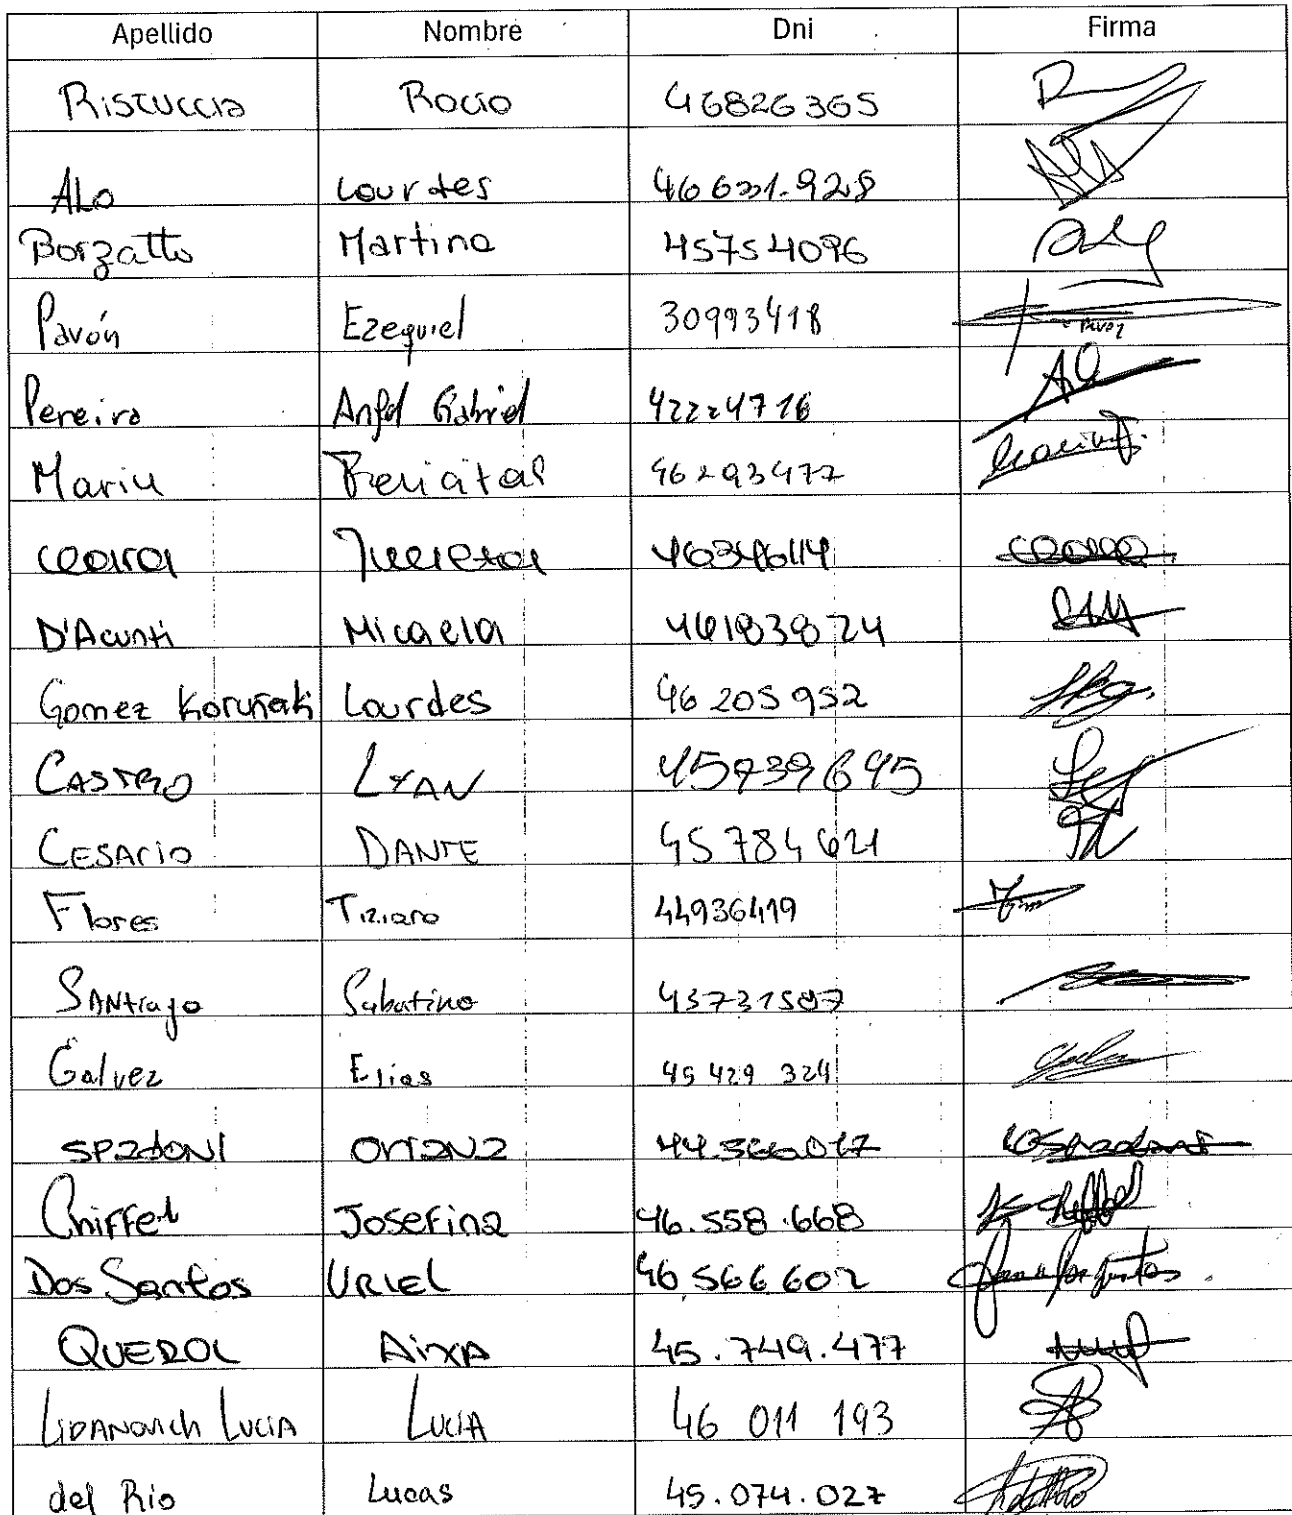 Apellido Nombre Dni Firma
Ristuccia Rocío 46826365
ALO Lourdes 46631.928
Borzatto Martina 45754096
Pavón Ezequiel 30993418
Pereira Angel Gabriel 42224716
Marin Felicitas 46293477
Julieta 46346114
D'Acunti Micaela 46183824
Gomez Lourdes 46 205 952
CASTRO LYAN 45939695
CESARIO DANTE 45 784 621
Flores Tiziano 44936419
SANtiago Sabatino 43731587
Galvez Elias 45 429 324
SPadONI OrIaNa 44.566.017
Chiffel Josefina 46.558.668
Dos Santos URIEL 46 566 602
QUEROL AiXA 45.749.477
LIDANOVICH LUCIA LUCIA 46 011 193
del Río Lucas 45.074.027